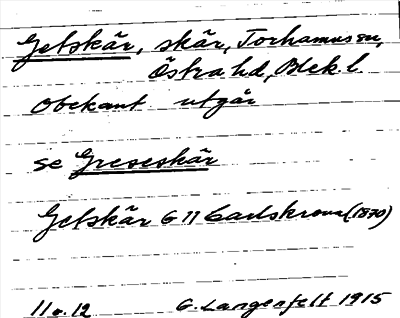 Getskär, skär, Torhamns sn,
Östra hd, Blek. l.
Obekant utgår
se Greseskär
Getskär G 11 Carlskrona (1870)
11 o. 12 G. Langenfelt 1915